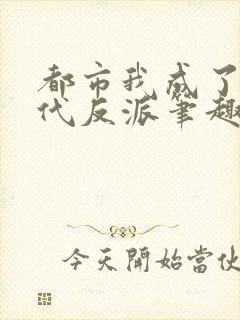 都市我成了
代反派笔趣
今天開始當伙